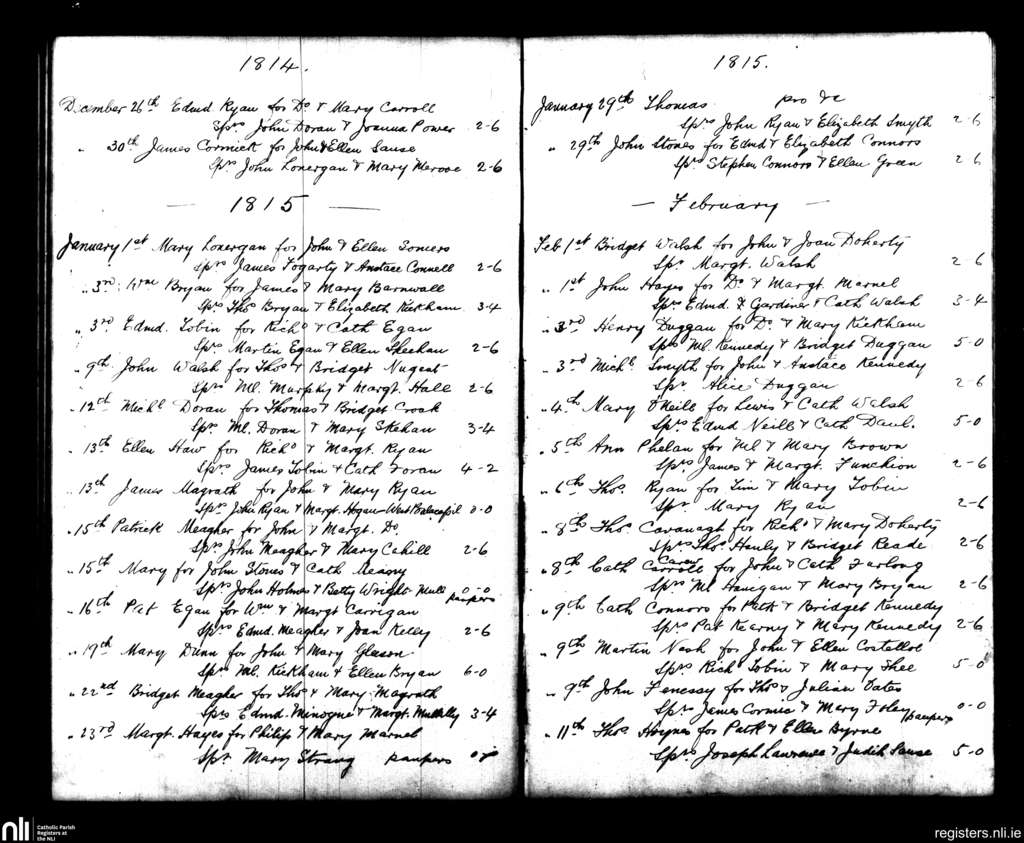 1814.
December 26th Edmd Ryan for Do & Mary Carroll
Sprs John Doran & Joanna Power 2-6
" 30th James Cormick for John & Ellen Sause
Sprs John Lonergan & Mary 2-6
— 1815 —
January 1st Mary Lonergan for John & Ellen Somers
Sprs James Fogarty & Anstace Connell 2-6
" 3rd Wm Bryan for James & Mary Barnwall
Sprs Thos Bryan & Elizabeth Kickham 3-4
" 3rd Edmd. Tobin for Richd & Cath Egan
Sprs Martin Egan & Ellen Sheehan 2-6
" 9th John Walsh for Thos & Bridget Nugent
Sprs Ml. Murphy & Margt. Hall 2-6
" 12th Michl Doran for Thomas & Bridget Croak
Sprs Ml. Doran & Mary Skehan 3-4
" 13th Ellen Haw for Richd & Margt. Ryan
Sprs James Tobin & Cath Foran 4-2
" 13th James Magrath for John & Mary Ryan
Sprs John Ryan & Margt. Hogan - West 0-0
" 15th Patrick Meagher for John & Margt. Do
Sprs John Meagher & Mary Cahill 2-6
" 15th Mary for John Stones & Cath
Sprs John Holmes & Betty Wright Mull paupers 0-0
" 16th Pat Egan for Wm & Margt Carrigan
Sprs Edmd. Meagher & Joan Kelly 2-6
" 19th Mary Dunn for John & Mary Gleason
Sprs Ml. Kickham & Ellen Bryan 6-0
" 22nd Bridget Meagher for Thos & Mary Magrath
Sprs Edmd. Minogue & Margt. Mullally 3-4
" 23rd Margt. Hayes for Philip & Mary Marnel
Spr. Mary Strang paupers 0-0
1815.
January 29th Thomas pro &c
Sprs John Ryan & Elizabeth Smyth 2-6
" 29th John Stones for Edmd & Elizabeth Connors
Sprs Stephen Connors & Ellen Green 2-6
— February —
Feb 1st Bridget Walsh for John & Joan Doherty
Spr. Margt. Walsh 2-6
" 1st John Hayes for Do & Margt. Marnel
Sprs Edmd. F Gardiner & Cath Walsh 3-4
" 3rd Henry Duggan for Do. & Mary Kickham
Sprs Ml. Kennedy & Bridget Duggan 5-0
" 3rd Michl Smyth for John & Anstace Kennedy
Spr. Alice Duggan 2-6
" 4th Mary O'Neill for Lewis & Cath Walsh
Sprs Edmd Neill & Cath Daul. 5-0
" 5th Ann Phelan for Ml & Mary Brown
Sprs James & Margt. Funchion 2-6
" 6th Thos. Ryan for Tim & Mary Tobin
Spr Mary Ryan 2-6
" 8th Thos Cavanagh for Richd & Mary Doherty
Sprs Thos Hanly & Bridget Reade 2-6
" 8th Cath Carroll Carew for John & Cath Furlong
Sprs Ml Hanigan & Mary Bryan 2-6
" 9th Cath Connors for Patk & Bridget Kennedy
Sprs Pat Kearny & Mary Kennedy 2-6
" 9th Martin Nash for John & Ellen Costelloe
Sprs Richd Tobin & Mary Shee 5-0
" 9th John Fenessy for Thos & Julian Oates
Sprs James Cormic & Mary Foley paupers 0-0
" 11th Thos Haynes for Patk & Ellen Byrne
Sprs Joseph Lawrence & Judith Sause 5-0
nli
Catholic Parish
Registers at
the NLI
registers.nli.ie